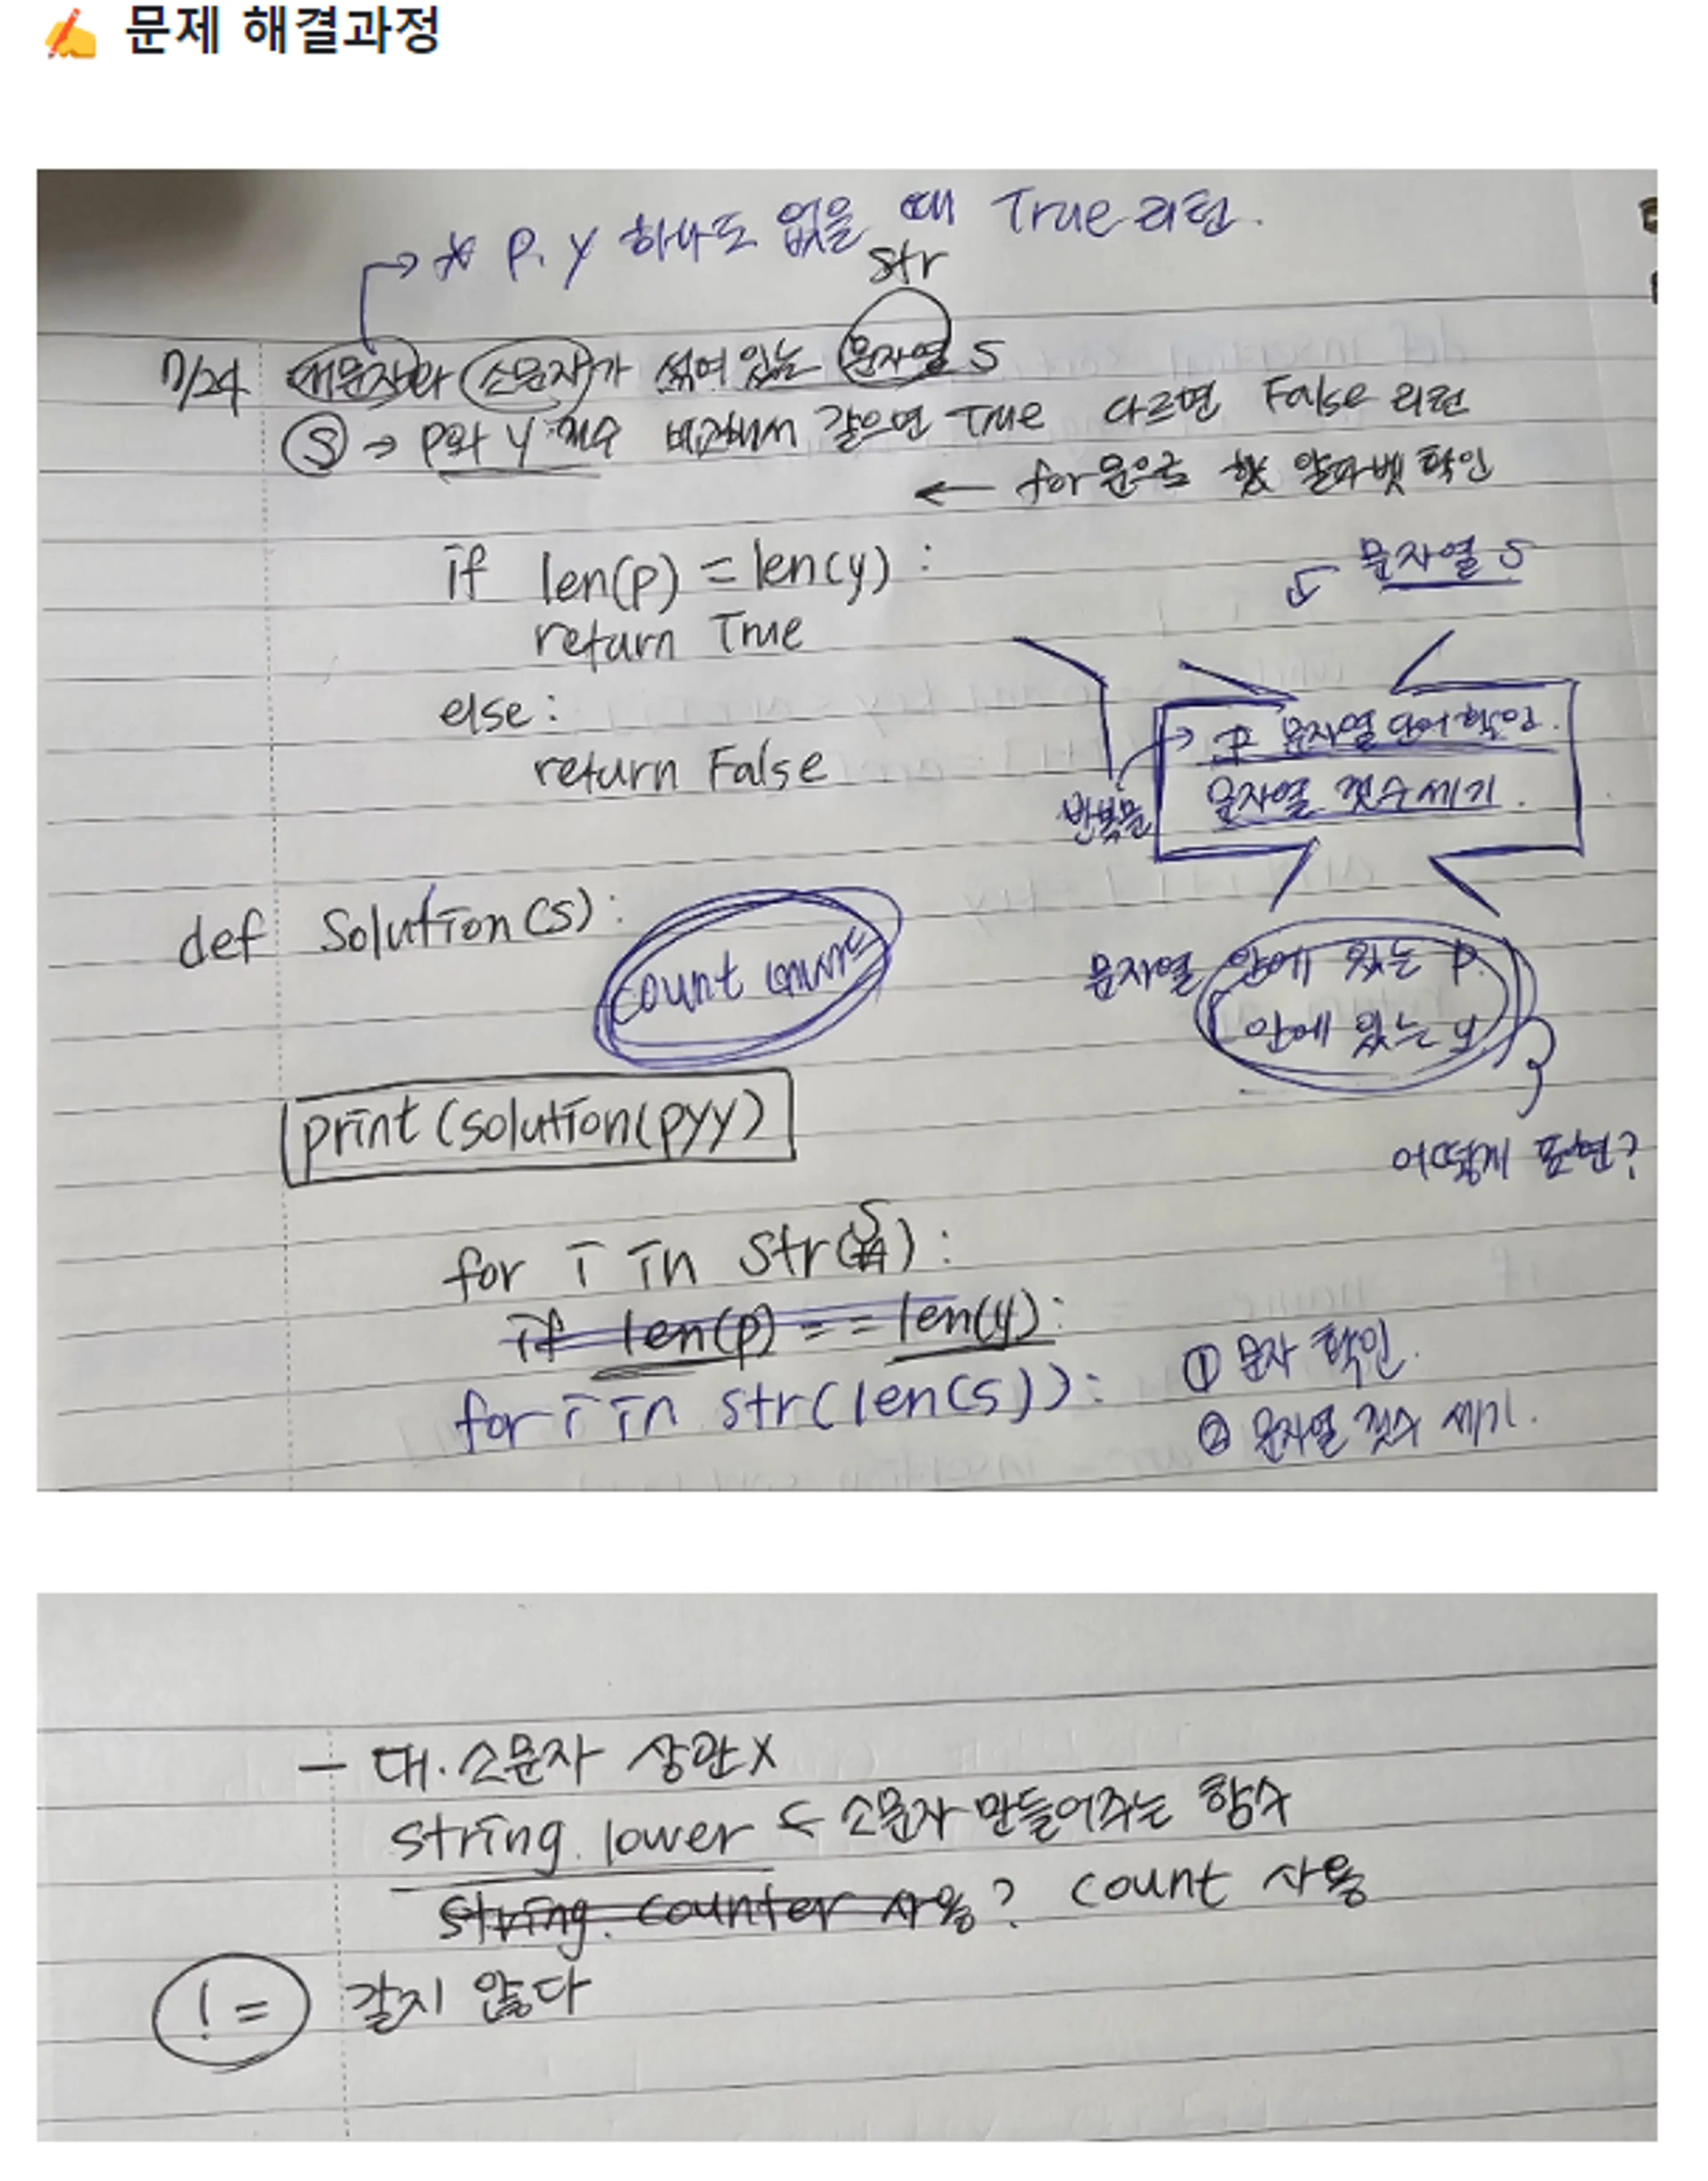 ✍️ 문제 해결과정
* P, y 하나도 없을 때 True 리턴.
str
7/24 대문자와 소문자가 섞여 있는 문자열 s
ⓢ → p와 y 갯수 비교해서 같으면 True 다르면 False 리턴
← for문으로 알파벳 확인
if len(p) = len(y) :
문자열 s
return True
else :
문자열 단어 확인.
return False
문자열 갯수 세기.
반복문
def Solution(s) :
count
문자열 안에 있는 p.
안에 있는 y.
print(solution(pyy)
어떻게 표현?
for i in str(s) :
if len(p) == len(y) :
① 문자 확인.
for i in str(len(s)) :
② 문자열 갯수 세기.
- 대.소문자 상관X
string. lower ← 소문자 만들어주는 함수
string. counter 사용? count 사용
!= 같지 않다